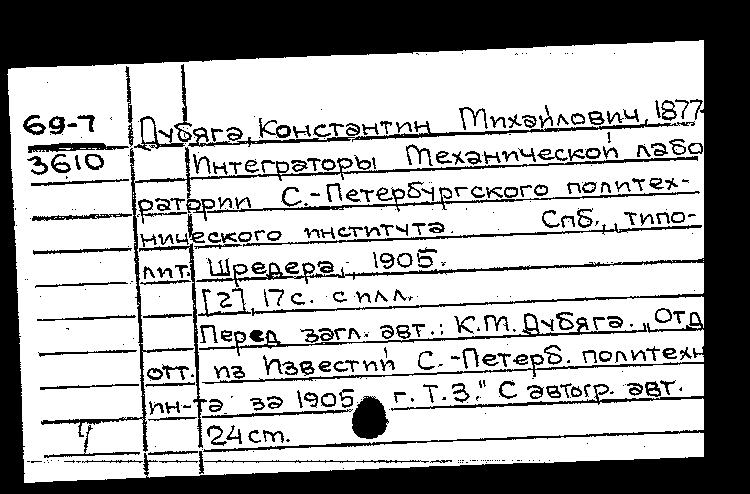 69-7
3610
Дубяга, Константин Михайлович, 1877-
Интеграторы Механической лабо
ратории С.-Петербургского политех-
нического института. Спб., типо-
лит. Шредера, 1905.
[2], 17 с. с илл.
Перед загл. авт.: К.М. Дубяга. "Отд
отт. из Известий С.-Петерб. политехн
ин-та за 1905 г. Т.3." С автогр. авт.
24 см.